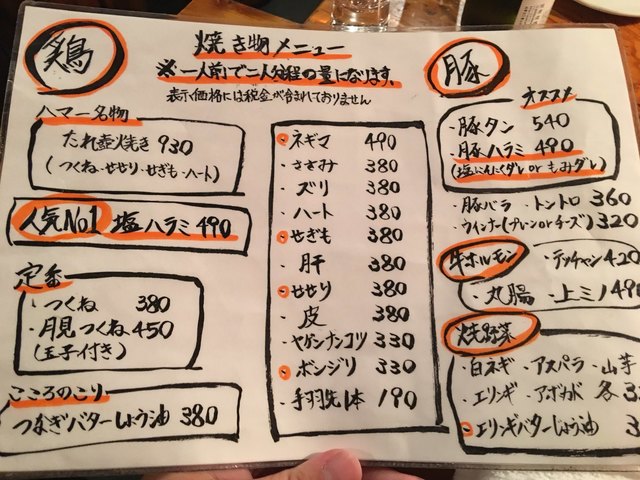 鶏
焼き物メニュー
※一人前で二人分程の量になります。
表示価格には税金が含まれておりません
ハマー名物
たれ壺焼き 930
(つくね・せせり・せぎも・ハート)
人気No1 塩ハラミ 490
定番
・つくね 380
・月見つくね 450
(玉子付き)
こころのこり
つなぎバターしょう油 380
・ネギマ 490
・ささみ 380
・ズリ 380
・ハート 380
・せぎも 380
・肝 380
・せせり 380
・皮 380
・ヤゲンナンコツ 330
・ボンジリ 330
・手羽先1本 190
豚
オススメ
・豚タン 540
・豚ハラミ 490
(塩にんにくダレ or もみダレ)
・豚バラ ・トントロ 360
・ウィンナー(プレーン or チーズ) 320
牛ホルモン
・テッチャン 420
・丸腸 ・上ミノ 490
焼野菜
・白ネギ ・アスパラ ・山芋
・エリンギ ・アボカド 各 3
・エリンギバターしょう油 3